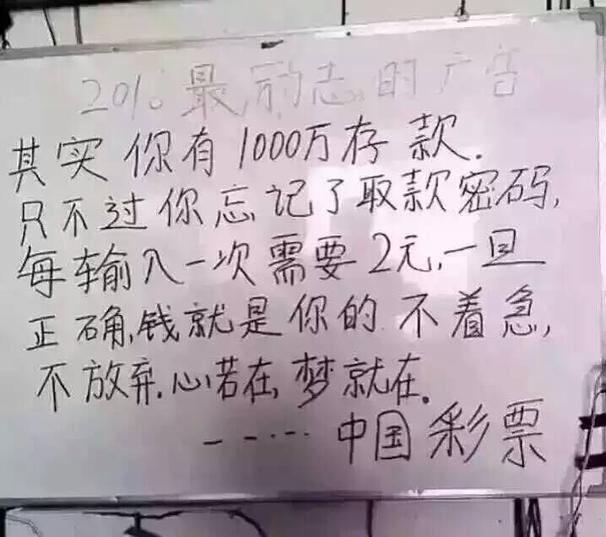 2016最励志的广告
其实你有1000万存款.
只不过你忘记了取款密码,
每输入一次需要2元,一旦
正确,钱就是你的.不着急,
不放弃.心若在,梦就在。
-----中国彩票